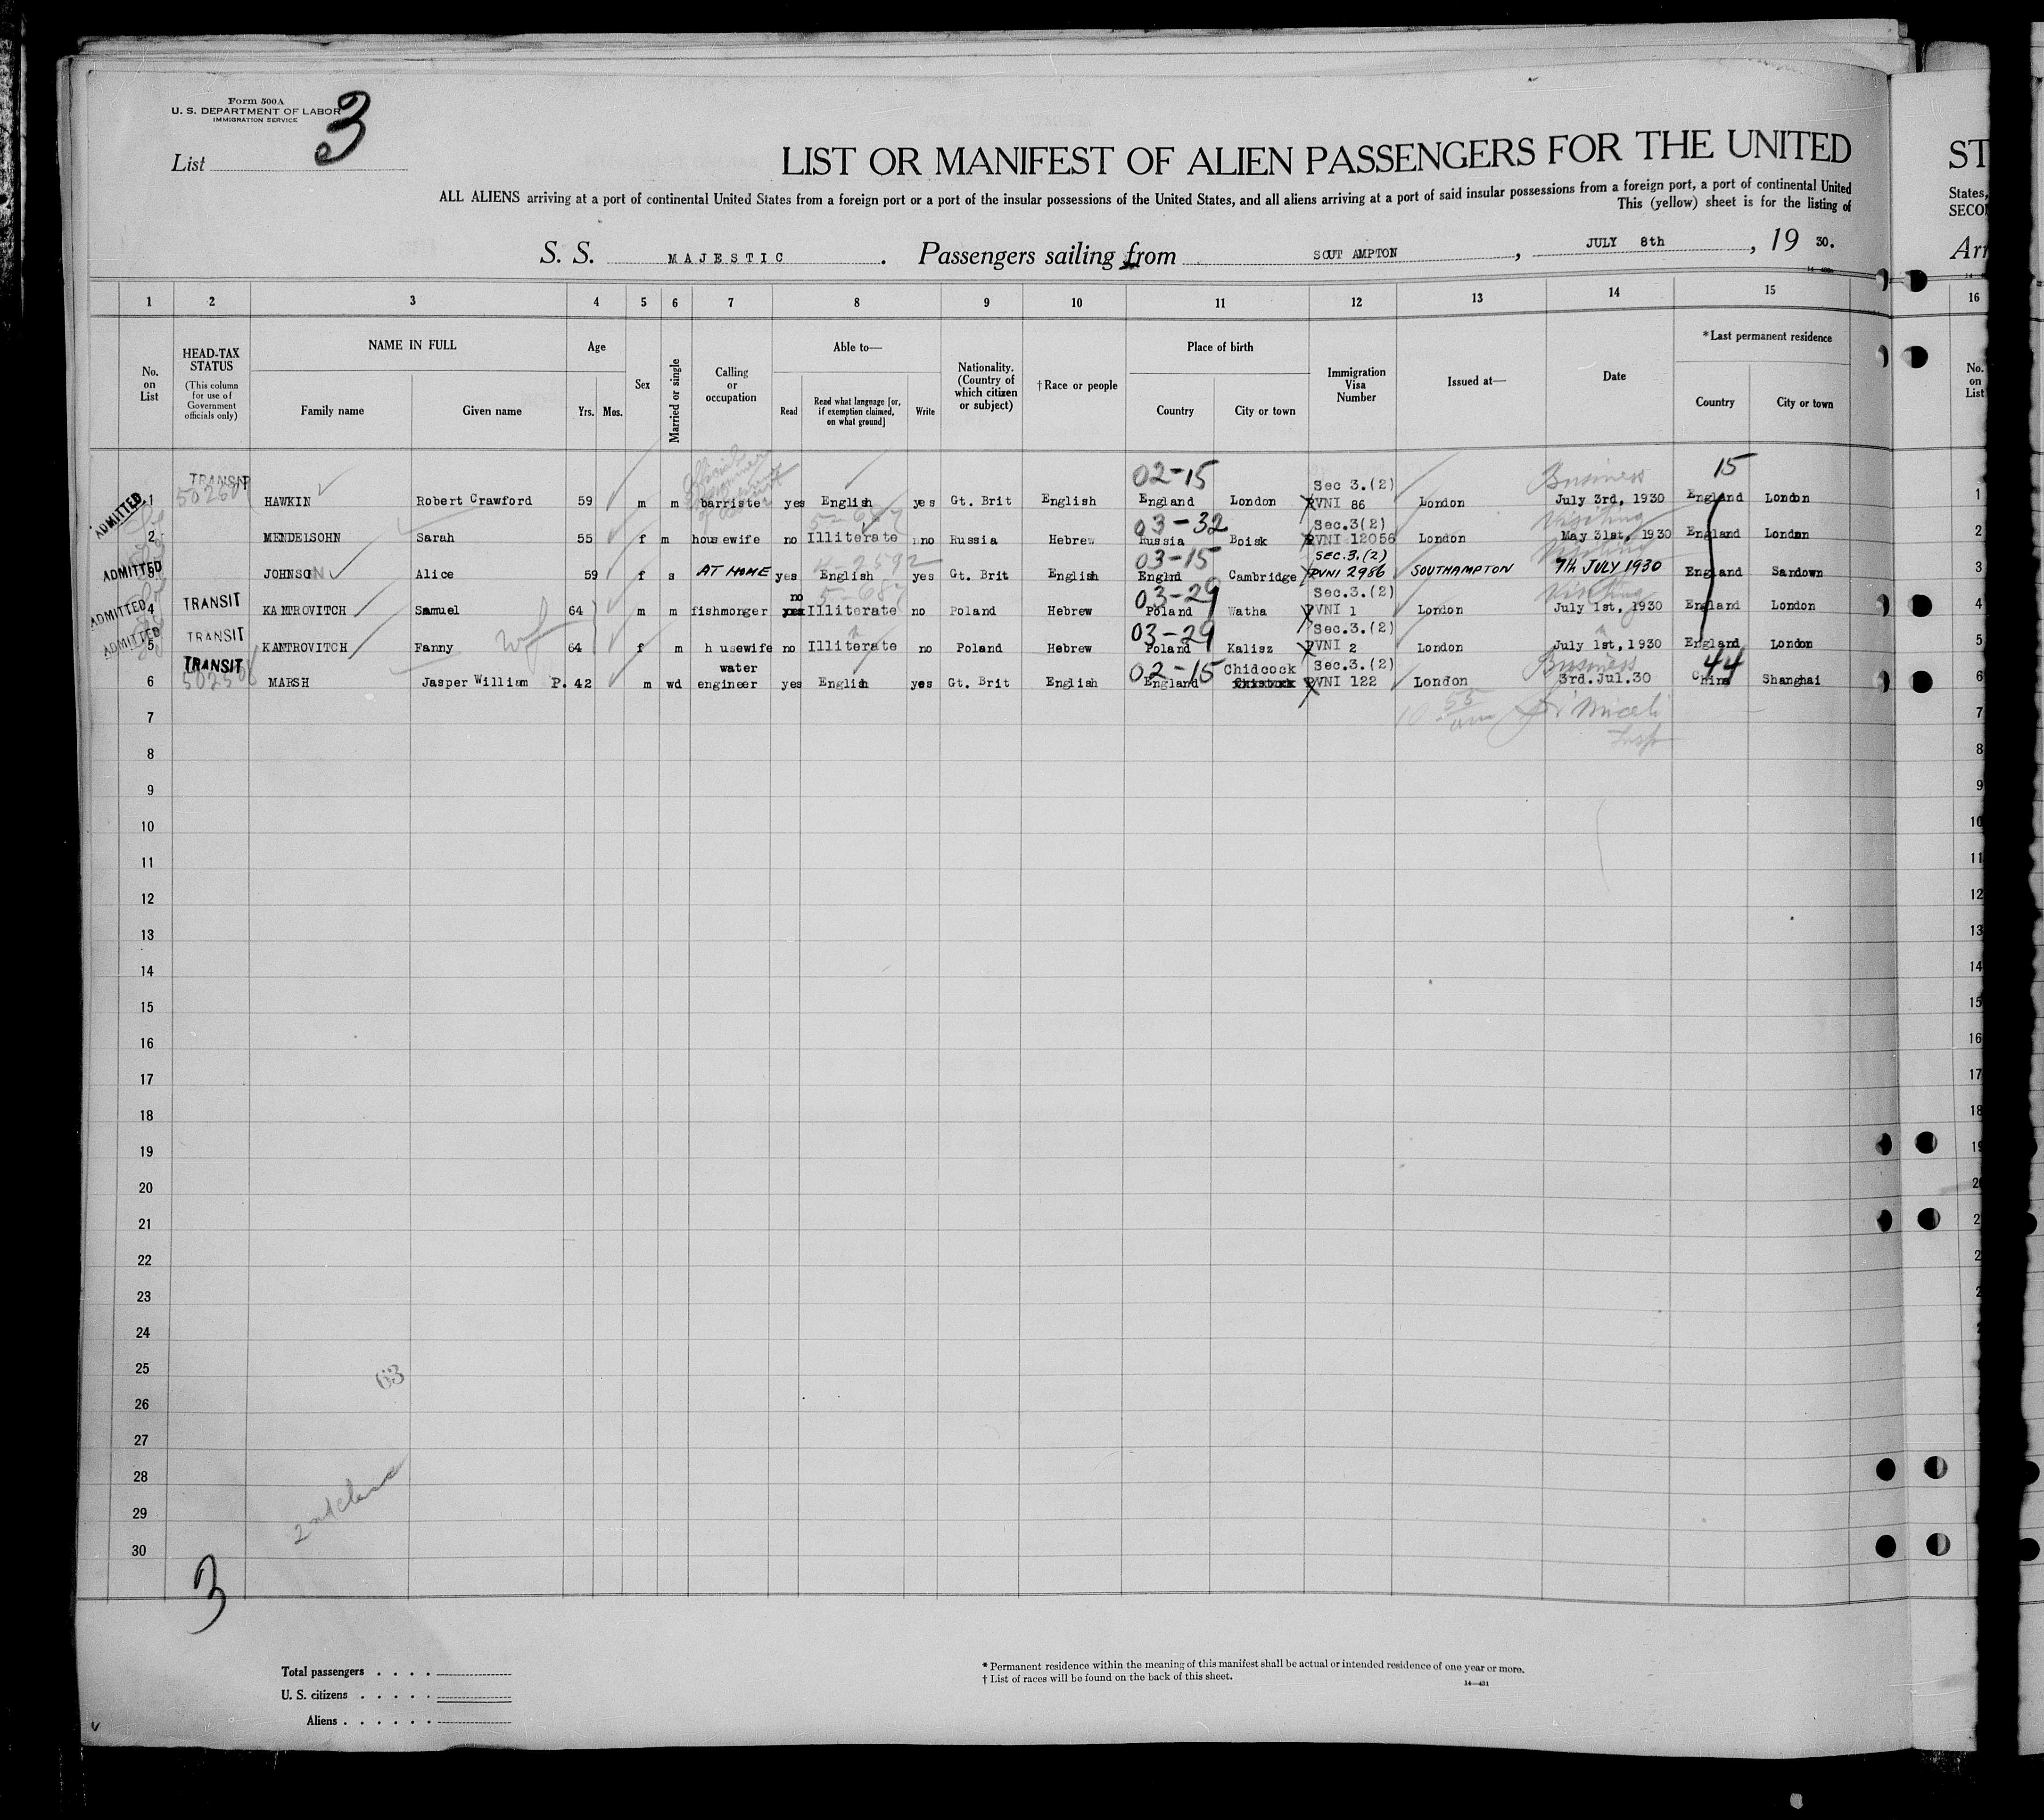 Form 500A
U. S. DEPARTMENT OF LABOR
IMMIGRATION SERVICE
3
List
LIST OR MANIFEST OF ALIEN PASSENGERS FOR THE UNITED
ST
ALL ALIENS arriving at a port of continental United States from a foreign port or a port of the insular possessions of the United States, and all aliens arriving at a port of said insular possessions from a foreign port, a port of continental United
States,
This (yellow) sheet is for the listing of
SECO
S. S. MAJESTIC. Passengers sailing from SOUT AMPTON, JULY 8th, 19 30.
Arr
1 2 3 4 5 6 7 8 9 10 11 12 13 14 15 16
No. on List
HEAD-TAX STATUS
(This column for use of Government officials only)
NAME IN FULL
Family name Given name
Age
Yrs. Mos.
Sex
Married or single
Calling or occupation
Able to—
Read
Read what language [or, if exemption claimed, on what ground]
Write
Nationality. (Country of which citizen or subject)
†Race or people
Place of birth
Country City or town
Immigration Visa Number
Issued at—
Date
*Last permanent residence
Country City or town
No. on List
TRANSIT 02-15 Sec 3.(2) Business 15
ADMITTED 1 HAWKIN Robert Crawford 59 m m barriste yes English yes Gt. Brit English England London PVNI 86 London July 3rd, 1930 England London 1
5-687 03-32 Sec.3(2) Visiting
2 MENDELSOHN Sarah 55 f m housewife no Illiterate no Russia Hebrew Russia Boisk PVNI 12056 London May 31st, 1930 England London 2
03-15 SEC.3.(2) Visiting
ADMITTED 3 JOHNSON Alice 59 f s AT HOME yes English yes Gt. Brit English Englnd Cambridge PVNI 2986 SOUTHAMPTON 7th JULY 1930 England Sandown 3
no 5-687 03-29 Sec.3.(2) Visiting
ADMITTED 4 TRANSIT KANTROVITCH Samuel 64 m m fishmonger yes Illiterate no Poland Hebrew Poland Watha PVNI 1 London July 1st, 1930 England London 4
03-29 Sec.3.(2)
ADMITTED 5 TRANSIT KANTROVITCH Fanny wf 64 f m h usewife no Illiterate no Poland Hebrew Poland Kalisz PVNI 2 London July 1st, 1930 England London 5
TRANSIT water 02-15 Chidcock Sec.3.(2) Business 44
6 MARSH Jasper William P. 42 m wd engineer yes English yes Gt. Brit English England PVNI 122 London 3rd. Jul.30 China Shanghai 6
7 7
Insp
8 8
9 9
10 10
11 11
12 12
13 13
14 14
15 15
16 16
17 17
18 18
19 19
20
21
22
23
24
25
63
26
27
28
2nd class
29
30
3
Total passengers
U. S. citizens
Aliens
* Permanent residence within the meaning of this manifest shall be actual or intended residence of one year or more.
† List of races will be found on the back of this sheet.
14—431